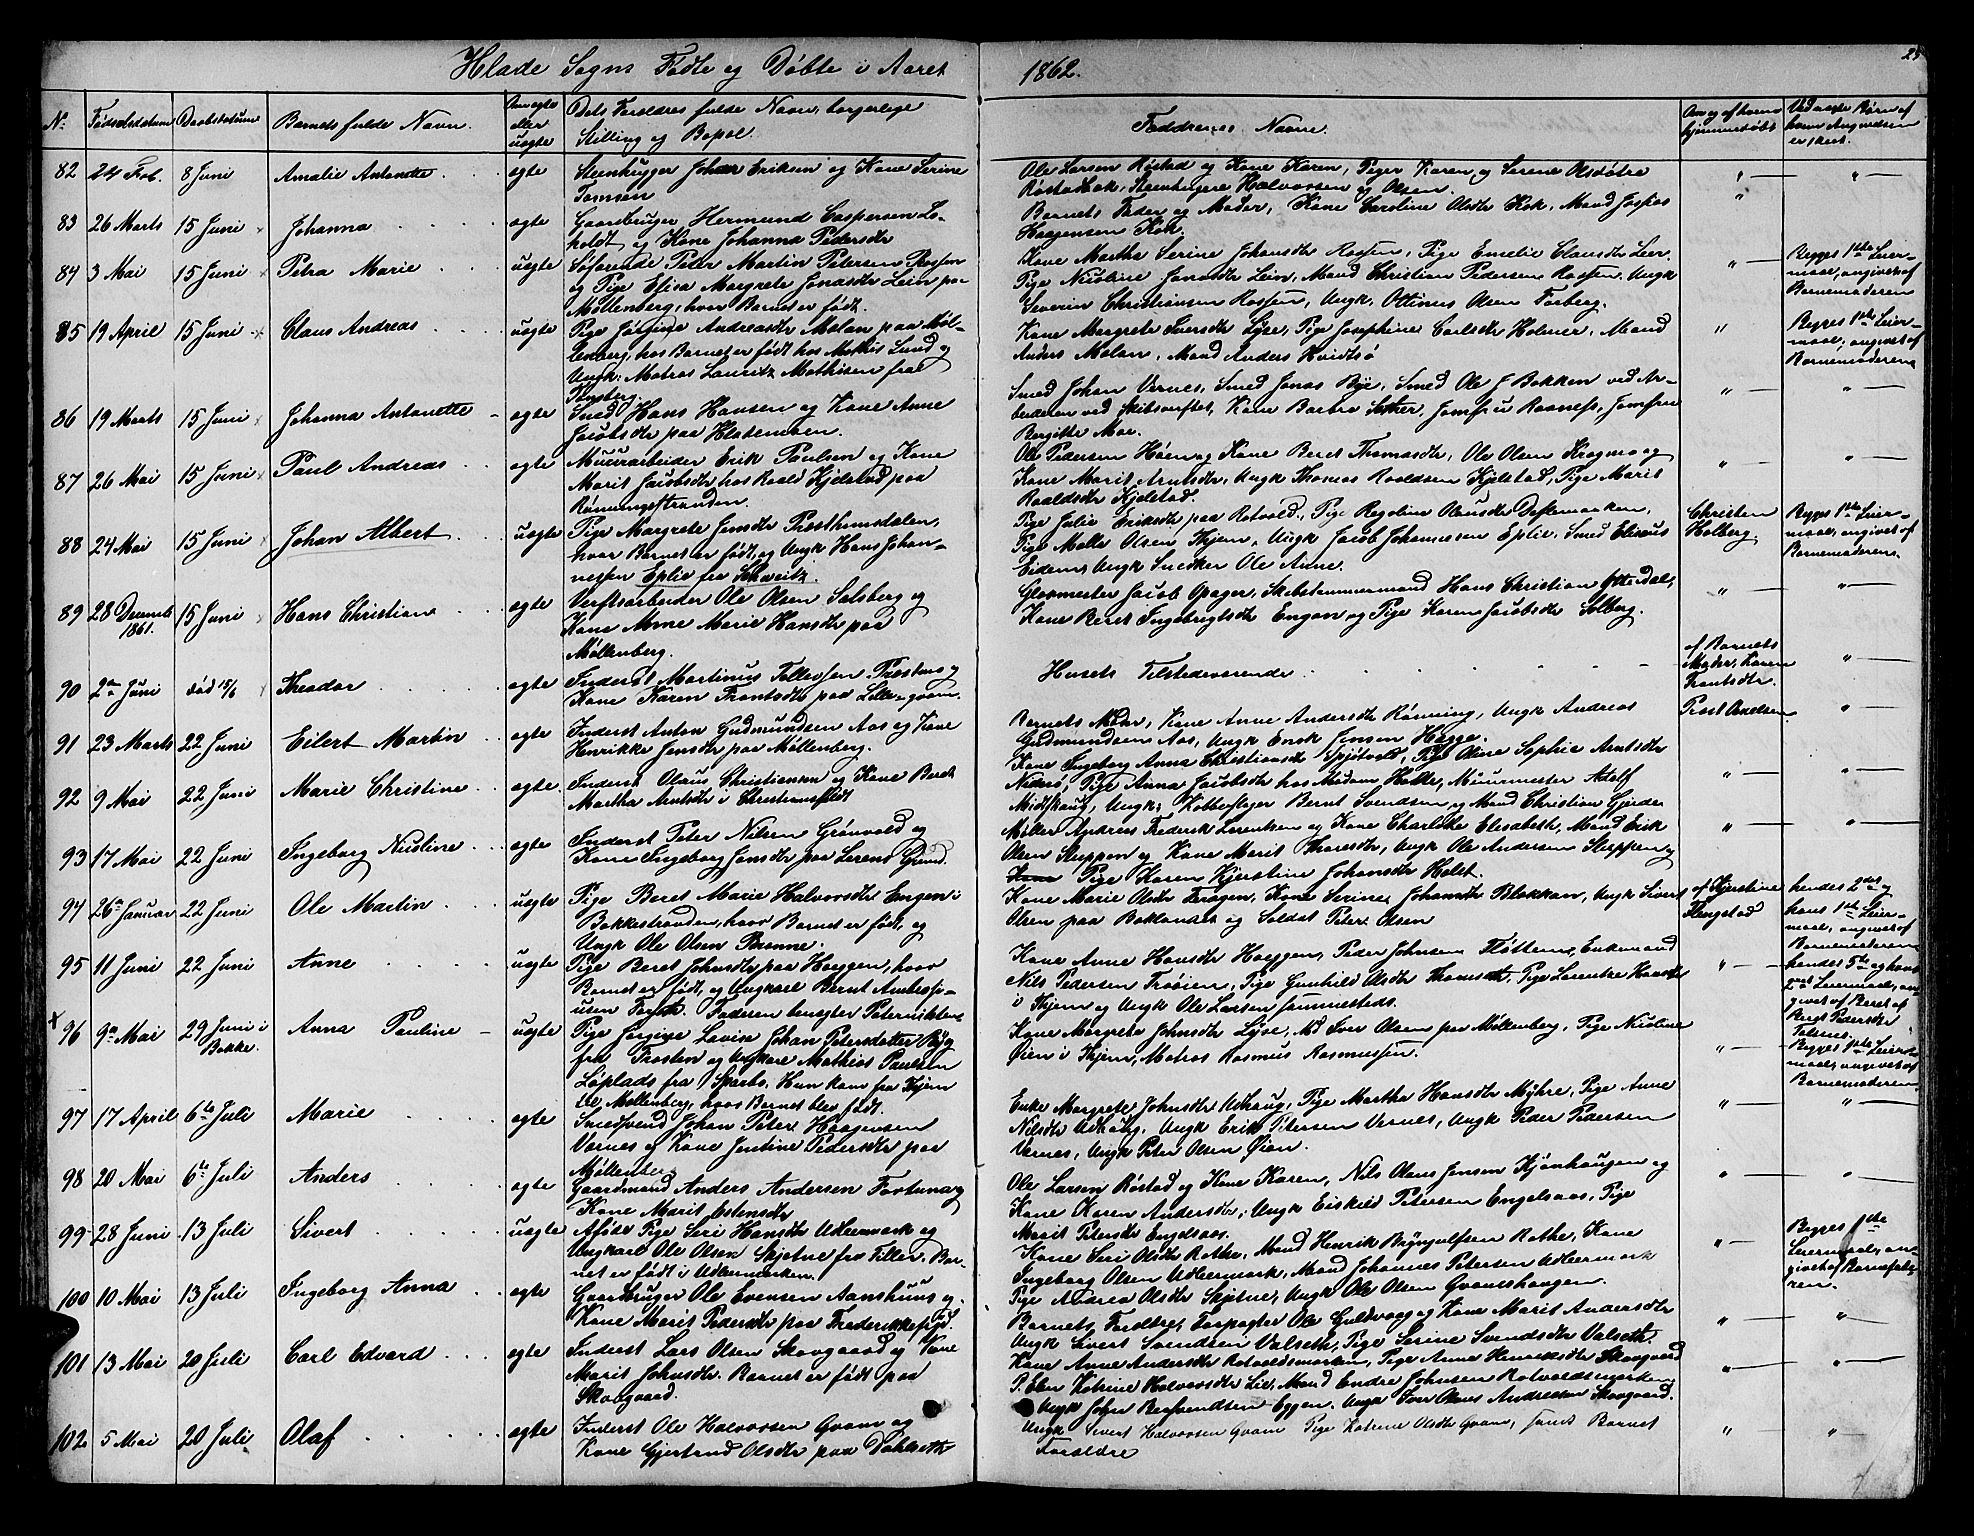 Hlade Sogns Fødte og Døbte i Aaret 1862.
25
No Fødselsdatum Daabsdatum Barnets fulde Navn. Om ægte eller uægte Dets Forældres fulde Navn, borgerlige Stilling og Bopæl. Faddrenes Navne. Om og af hvem hjemmedøbt Ved uægte Børn af hvem Angivelsen er skeet.
82 24 Feb. 8 Juni Amalie Antonette ægte Steenhugger Johan Eriksen og Kone Serine
Tomsen
Ole Larsen Røstad og Kone Karen, Piger Karen og Serene Olsdøtre
Røstadbak, Steenhuggere Halvorsen og Olsen.
83 26 Marts 15 Juni Johanna ægte Gaardbruger Hermund Caspersen Lo-
holdt og Kone Johanna Pedersdtr
Barnets Fader og Moder, Kone Caroline Olsdtr Kok, Mand Jospas
Haagensen Kok.
84 3 Mai 15 Juni Petra Marie uægte Søfarende Peter Martin Petersen Rossen
og Pige Elisa Margrete Jonasdtr Lein paa
Møllenberg, hvor Barnet er født.
Kone Martha Serine Johansdtr Rossen, Pige Emelie Clausdtr Leer.
Pige Nicoline Jonasdtr Lein, Mand Christian Pedersen Rossen. Ungk
Severin Christiansen Rossen, Ungk. Ottinus Olsen Forberg.
Begges 1ste Leier-
maal, angivet af
Barnemoderen
85 19 April 15 Juni Claus Andreas uægte Pige Jørgine Andreasdtr Molan paa Møl-
lenberg, hos Barnet er født hos Mathis Lund og
Ungk. Matros Lauritz Mathisen fra
Tønsberg.
Kone Margrete Iversdtr Lyse, Pige Josephine Carlsdtr Holmer, Mand
Anders Molan, Mand Anders Kvidtsø
Begges 1ste Leier-
maal, angivet af
Barnemoderen
86 19 Marts 15 Juni Johanna Antonette ægte Smed Hans Hansen og Kone Anne
Jacobsdtr paa Hlademoen.
Smed Johan Vernes, Smed Jonas Bye, Smed Ole J Bakken ved Ar-
beideren ved Skibsverftet, Kone Barbro Sæther, Jomfru Raanefs, Jomfru
Bergitte Moe.
87 26 Mai 15 Juni Paul Andreas ægte Muurarbeider Erik Paulsen og Kone
Marit Jacobsdtr hos Roald Kjelstad paa
Rønningsstranden.
Ole Pedersen Høien og Kone Beret Thomasdtr, Ole Olsen Krogmo og
Kone Marit Arntsdtr, Ungk Thomas Roaldsen Kjelstad, Pige Marit
Roaldsdtr Kjelstad.
88 24 Mai 15 Juni Johan Albert uægte Pige Margrete Jensdtr Presthuusdalen,
hvor Barnet er født, og Ungk Hans Johan-
nessen Eplie fra Schweitz.
Pige Julie Eriksdtr paa Rotvold, Pige Regoline Olausdtr Deflemarken,
Pige Malle Olsen Thjem, Ungk Jacob Johannesen Eplie, Smed Eliseus
Eidem, Ungk Snedker Ole Anne.
Christen
Holberg.
Begges 1ste Leier-
maal, angivet af
Barnemoderen.
89 28 Decemb 1861. 15 Juni Hans Christian ægte Verftsarbeider Ole Olsen Solsberg og
Kone Anne Marie Hansdtr paa
Møllenberg.
Glasmester Jacob Opager, Skibstømmermand Hans Christian Ottendal,
Kone Beret Ingebrigtsdtr Engan og Pige Karen Jacobsdtr Solberg.
90 2den Juni død 15/6 Theodor ægte Inderst Martinus Tollefsen Prosthus og
Kone Karen Frantsdtr paa Lillegvam.
Husets Tilstedeværende
af Barnets
Moder, Karen
Frantsdtr.
91 23 Marts 22 Juni Eilert Martin ægte Inderst Anton Gudmundsen Aas og Kone
Henrikke Jensdtr paa Møllenberg.
Barnets Moder, Kone Anne Andersdtr Rønning, Ungk Andreas
Gudmundsen Aas, Ungk Enok Jensen Hegge.
Prost Anelsen
92 9 Mai 22 Juni Marie Christine ægte Inderst Olaus Christiansen og Kone Beret
Martha Arntsdtr i Christiansfeldt
Kone Ingeborg Anna Christiansdtr Spjotvold, Pige Oline Sophie Arntsdtr
Nedrø, Pige Anna Jacobsdtr hos Madam Halle, Muurmester Adolf
Midtskaug, Ungk. Kobberslager Bernt Svendsen og Mand Christian Gjeder
93 17 Mai 22 Juni Ingeborg Nicoline ægte Inderst Peter Nilsen Grønvold og
Kone Ingeborg Jonsdtr paa Lerens Grund.
Møller Andreas Frederik Lorentsen og Kone Charlotte Elisabeth, Mand Erik
Olsen Sluppen og Kone Marit Thoresdtr, Ungk Ole Andersen Sluppen og
Pige Karen Kjerstine Johansdtr Holst.
94 26de Januar 22 Juni Ole Martin uægte Pige Beret Marie Halvorsdtr Engen i
Bakkestranden, hvor Barnet er født, og
Ungk Ole Olsen Brønne.
Kone Marie Olsdtr Feragen, Kone Serine Johansdtr Blokkan, Ungk Sivert
Olsen paa Baklandet og Soldat Peter Olsen
af Kjerstine
Flengstad
hendes 2det og
hans 1ste Leier-
maal, angivet af
Barnemoderen
95 11 Juni 22 Juni Anne uægte Pige Beret Johnsdtr paa Hoeggen, hvor
Barnet er født, og Ungkarl Bernt Ambrosi-
usen Forseth. Faderen benægter Paterniteten
Kone Anne Hansdtr Hoeggen, Peder Johnsen Fløtten, Enkemand
Nils Pedersen Trøien, Pige Gunhild Olsdtr Thomset, Pige Lorentse Hansdtr
i Thjem og Ungk Ole Larsen Sunnesteds.
hendes 5te og hans
2det Leiermaal, an-
givet af Beret
Beret Pedersdtr
96 9de Mai 29 Juni i Bakke. Anna Pauline uægte Pige Jørgine Lovise Johan Petersdatter Ryg
fra Frosten og Ungkarl Mathias Paulsen
Løplads fra Sparbo. Hun kom fra Thjem
til Møllenberg, hvor Barnet blev født.
Kone Margrete Johnsdtr Lyse, Md Iver Olsen paa Møllenberg, Pige Nicoline
Øien i Thjem, Matros Rasmus Rasmussen.
Begges 1ste Leier-
maal, angivet af
Barnemoderen
97 17 April 6te Juli Marie ægte Smedsvend Johan Peter Haagensen
Vernes og Kone Jentine Pedersdtr paa
Møllenberg
Enke Margrete Johnsdtr Udhaug, Pige Martha Hansdtr Myhre, Pige Anne
Nilsdtr Udhaug. Ungk Erik Petersen Vernes, Ungk Peder Pedersen
Vernes, Ungk Peter Olsen Øien.
98 20 Mai 6te Juli Anders ægte Gaardmand Anders Andersen Fortuna og
Kone Marit Estensdtr
Ole Larsen Røstad og Kone Karen, Nils Olaus Jensen Kjønhaugen og
Kone Karen Andersdtr, Ungk Eiskild Petersen Engelsaas, Pige
Marit Petersdtr Engelsaas.
99 28 Juni 13 Juli Sivert uægte Afsidt Pige Siri Hansdtr Udlermark og
Ungkarl Ole Olsen Skjetne fra Tiller. Bar-
net er født i Udlermarken.
Kone Seri Olsdtr Rothe, Mand Henrik Brynjulfsen Rothe, Kone
Ingeborg Olsen Udlermark, Mand Johannes Petersen Udlermark
Pige Andrea Olsdtr Skjetne, Ungk Ole Olsen Granshaugen.
Begges 1ste
Leiermaal, an-
givet af Barnefa-
ren.
100 10 Mai 13 Juli Ingeborg Anna ægte Gaardbruger Ole Evensen Aanshuus og
Kone Marit Pedersdtr paa Frederikkefryd.
Barnets Forældre, Forpagter Ole Guldvaag og Kone Marit Andersdtr
Ungk Sivert Svendsen Valseth, Pige Serine Svendsdtr Valseth.
101 13 Mai 20 Juli Carl Edvard ægte Inderst Lars Olsen Skovgaard og Kone
Marit Johnsdtr. Barnet er født paa
Skovgaard.
Kone Anne Andersdtr Rotvoldsmarken, Pige Anne Henriksdtr Skovgaard
P. Elen Katrine Halvorsdtr Lie, Mand Endre Johnsen Rotvoldsmarken
Ungk John Bersvendsen Eggen. Ungk Iver Olaus Andreassen Skovgaard.
102 5 Mai 20 Juli Olaf ægte Inderst Ole Halvorsen Gvam og
Kone Gjertrud Olsdtr paa Dahlseth
Ungk Sivert Halvorsen Gvam Pige Katrine Olsdtr Gvam, samt Barnet
Forældre